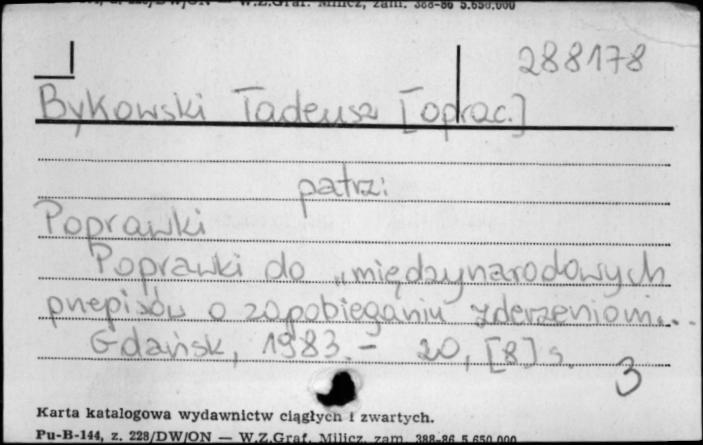 W.Z.Graf. Milicz, zam. 388-86 5.650.000
288178
Bykowski Tadeusz [oprac.]
patrz:
Poprawki
Poprawki do „międzynarodowych
przepisów o zapobieganiu zderzeniom...
Gdańsk, 1983. - 20, [8] s.
3
Karta katalogowa wydawnictw ciągłych i zwartych.
Pu-B-144, z. 228/DW/ON — W.Z.Graf. Milicz, zam. 388-86 5.650.000